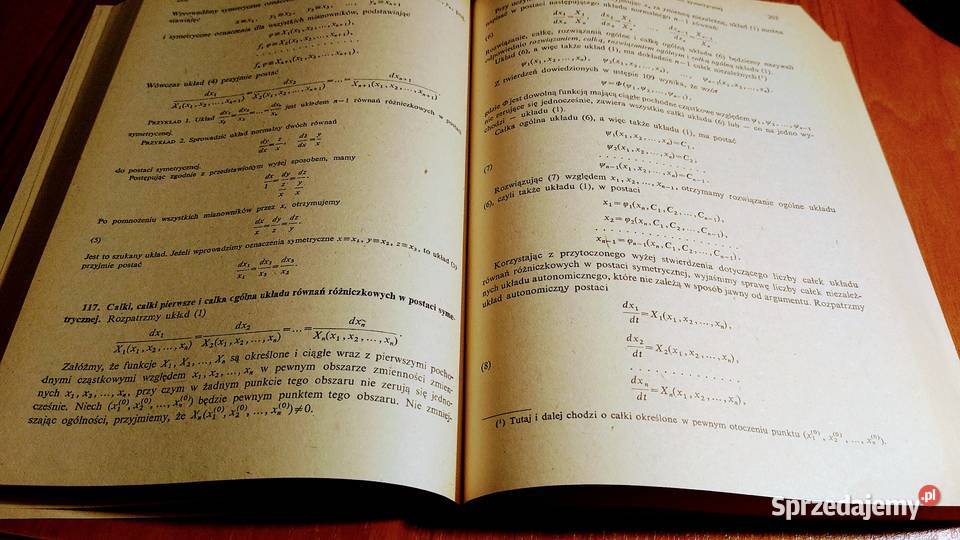 Wprowadźmy symetryczne oznaczenia
i symetryczne oznaczenia dla wszystkich mianowników, podstawiając
Wówczas układ (4) przyjmie postać
dx₁/X₁(x₁, x₂, ..., xₙ₊₁) = dx₂/X₂(x₁, x₂, ..., xₙ₊₁) = ... = dxₙ₊₁/Xₙ₊₁(x₁, x₂, ..., xₙ₊₁).
PRZYKŁAD 1. Układ jest układem n−1 równań różniczkowych w postaci
symetrycznej.
PRZYKŁAD 2. Sprowadzić układ normalny dwóch równań
dy/dx = z/x, dz/dx = y/x
do postaci symetrycznej.
Postępując zgodnie z przedstawionym wyżej sposobem, mamy
Po pomnożeniu wszystkich mianowników przez x, otrzymujemy
(5) dx/x = dy/z = dz/y.
Jest to szukany układ. Jeżeli wprowadzimy oznaczenia symetryczne x=x₁, y=x₂, z=x₃, to układ (5)
przyjmie postać
117. Całki, całki pierwsze i całka ogólna układu równań różniczkowych w postaci syme-
trycznej. Rozpatrzmy układ (1)
dx₁/X₁(x₁, x₂, ..., xₙ) = dx₂/X₂(x₁, x₂, ..., xₙ) = ... = dxₙ/Xₙ(x₁, x₂, ..., xₙ).
Załóżmy, że funkcje X₁, X₂, ..., Xₙ są określone i ciągłe wraz z pierwszymi pocho-
dnymi cząstkowymi względem x₁, x₂, ..., xₙ w pewnym obszarze zmienności zmien-
nych x₁, x₂, ..., xₙ, przy czym w żadnym punkcie tego obszaru nie zerują się jedno-
cześnie. Niech (x₁⁽⁰⁾, x₂⁽⁰⁾, ..., xₙ⁽⁰⁾) będzie pewnym punktem tego obszaru. Nie zmniej-
szając ogólności, przyjmiemy, że Xₙ(x₁⁽⁰⁾, x₂⁽⁰⁾, ..., xₙ⁽⁰⁾)≠0.
za zmienną niezależną, układ (1) można
napisać w postaci następującego układu normalnego n−1 równań:
(6) dx₁/dxₙ = X₁/Xₙ, dx₂/dxₙ = X₂/Xₙ, ..., dxₙ₋₁/dxₙ = Xₙ₋₁/Xₙ.
Rozwiązanie, całkę, rozwiązanie ogólne i całkę ogólną układu (6) będziemy nazywali
odpowiednio rozwiązaniem, całką, rozwiązaniem ogólnym i całką ogólną układu (1).
Układ (6), a więc także układ (1), ma dokładnie n−1 całek niezależnych(¹)
ψ₁(x₁, x₂, ..., xₙ), ψ₂(x₁, x₂, ..., xₙ), ..., ψₙ₋₁(x₁, x₂, ..., xₙ).
Z twierdzeń dowiedzionych w ustępie 109 wynika, że wzór
ψ=Φ(ψ₁, ψ₂, ..., ψₙ₋₁),
gdzie Φ jest dowolną funkcją mającą ciągłe pochodne cząstkowe względem ψ₁, ψ₂, ..., ψₙ₋₁
nie zerujące się jednocześnie, zawiera wszystkie całki układu (6) lub — co na jedno wy-
chodzi — układu (1).
Całka ogólna układu (6), a więc także układu (1), ma postać
ψ₁(x₁, x₂, ..., xₙ)=C₁,
ψ₂(x₁, x₂, ..., xₙ)=C₂,
(7) . . . . . . . . . . . .
ψₙ₋₁(x₁, x₂, ..., xₙ)=Cₙ₋₁.
Rozwiązując (7) względem x₁, x₂, ..., xₙ₋₁, otrzymamy rozwiązanie ogólne układu
(6), czyli także układu (1), w postaci
x₁=φ₁(xₙ, C₁, C₂, ..., Cₙ₋₁),
x₂=φ₂(xₙ, C₁, C₂, ..., Cₙ₋₁),
. . . . . . . . . . . .
xₙ₋₁=φₙ₋₁(xₙ, C₁, C₂, ..., Cₙ₋₁).
Korzystając z przytoczonego wyżej stwierdzenia dotyczącego liczby całek układu
równań różniczkowych w postaci symetrycznej, wyjaśnimy sprawę liczby całek niezależ-
nych układu autonomicznego, które nie zależą w sposób jawny od argumentu. Rozpatrzmy
układ autonomiczny postaci
dx₁/dt = X₁(x₁, x₂, ..., xₙ),
dx₂/dt = X₂(x₁, x₂, ..., xₙ),
(8) . . . . . . . . . . . .
dxₙ/dt = Xₙ(x₁, x₂, ..., xₙ).
(¹) Tutaj i dalej chodzi o całki określone w pewnym otoczeniu punktu (x₁⁽⁰⁾, x₂⁽⁰⁾, ..., xₙ⁽⁰⁾).
Sprzedajemy.pl